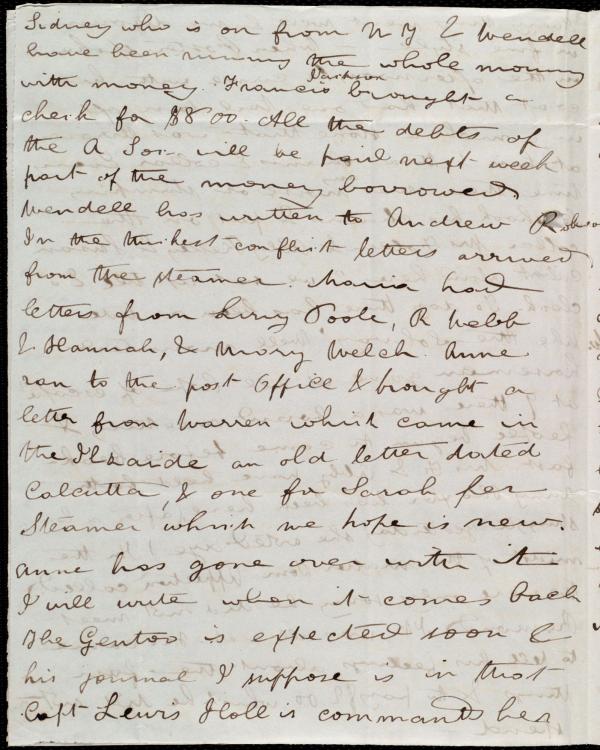 Sidney who is on from N Y & Wendell
have been running the whole morning
with money. Francis Jackson brought a
check for $800. All the debts of
the A Soc. will be paid next week
part of the money borrowed.
Wendell has written to Andrew
In the thickest conflict letters arrived
from the steamer. Maria had
letters from Lizzy Poole, R Webb
& Hannah, & Mary Welch. Anne
ran to the post Office & brought a
letter from Warren which came in
the an old letter dated
Calcutta, & one for Sarah per
Steamer which we hope is new.
Anne has gone over with it
I will write when it comes back
The Gentoo is expected soon &
his journal I suppose is in that
Capt Lewis Holl is commands her